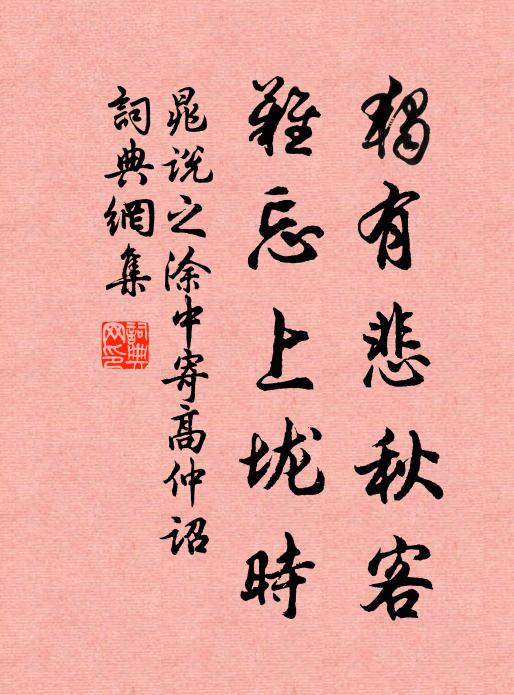 獨有悲秋客
難忘上垅時
晁说之涂中寄高仲诏
詞典網集
詞典網印